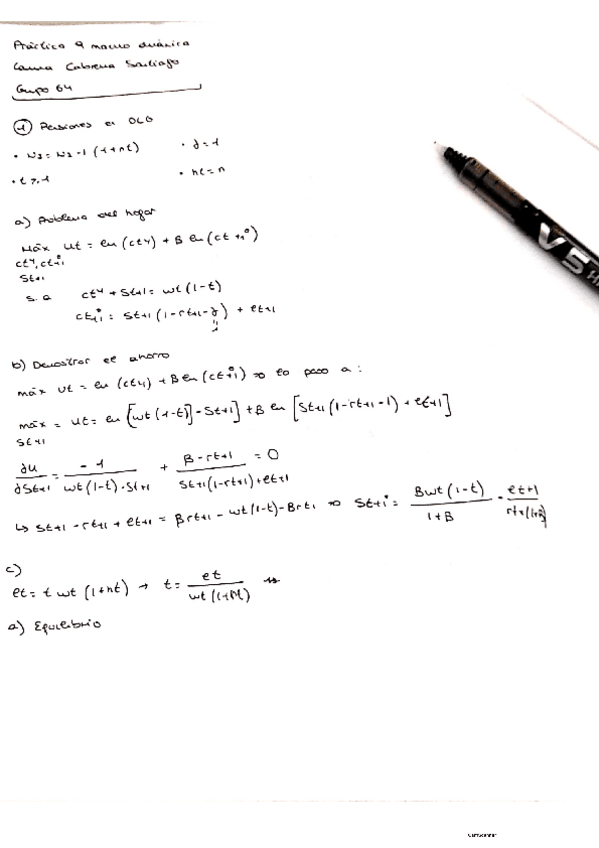 Práctica 9 macro dinámica
Laura Cabrera Santiago
Grupo 64
1 Pensiones en OLG
• N2 = N2-1 (1+nt) • δ=1
• t>,1 • nt = n
a) Problema del hogar
Máx Ut = ln (cty) + B ln (ct+1º)
cty, ct+1º
St+1
s.a cty + St+1 = wt (1-t)
ct+1º = St+1 (1-rt+1-δ) + et+1
b) Demostrar el ahorro
máx Ut = ln (cty) + B ln (ct+1º) => lo paso a :
máx = Ut = ln [wt (1-t)] - St+1] + B ln [St+1 (1-rt+1-1) + et+1]
St+1
∂u/∂St+1 = -1/wt(1-t)·St+1 + B-rt+1/St+1(1-rt+1)+et+1 = 0
↳ St+1 - rt+1 + et+1 = Brt+1 - wt(1-t) - Brt1 => St+1 = Bwt(1-t)/1+B - et+1/rt+1(1+B)
c)
et = t wt (1+nt) → t = et/wt(1+M)
a) Equilibrio
V5
CamScanner